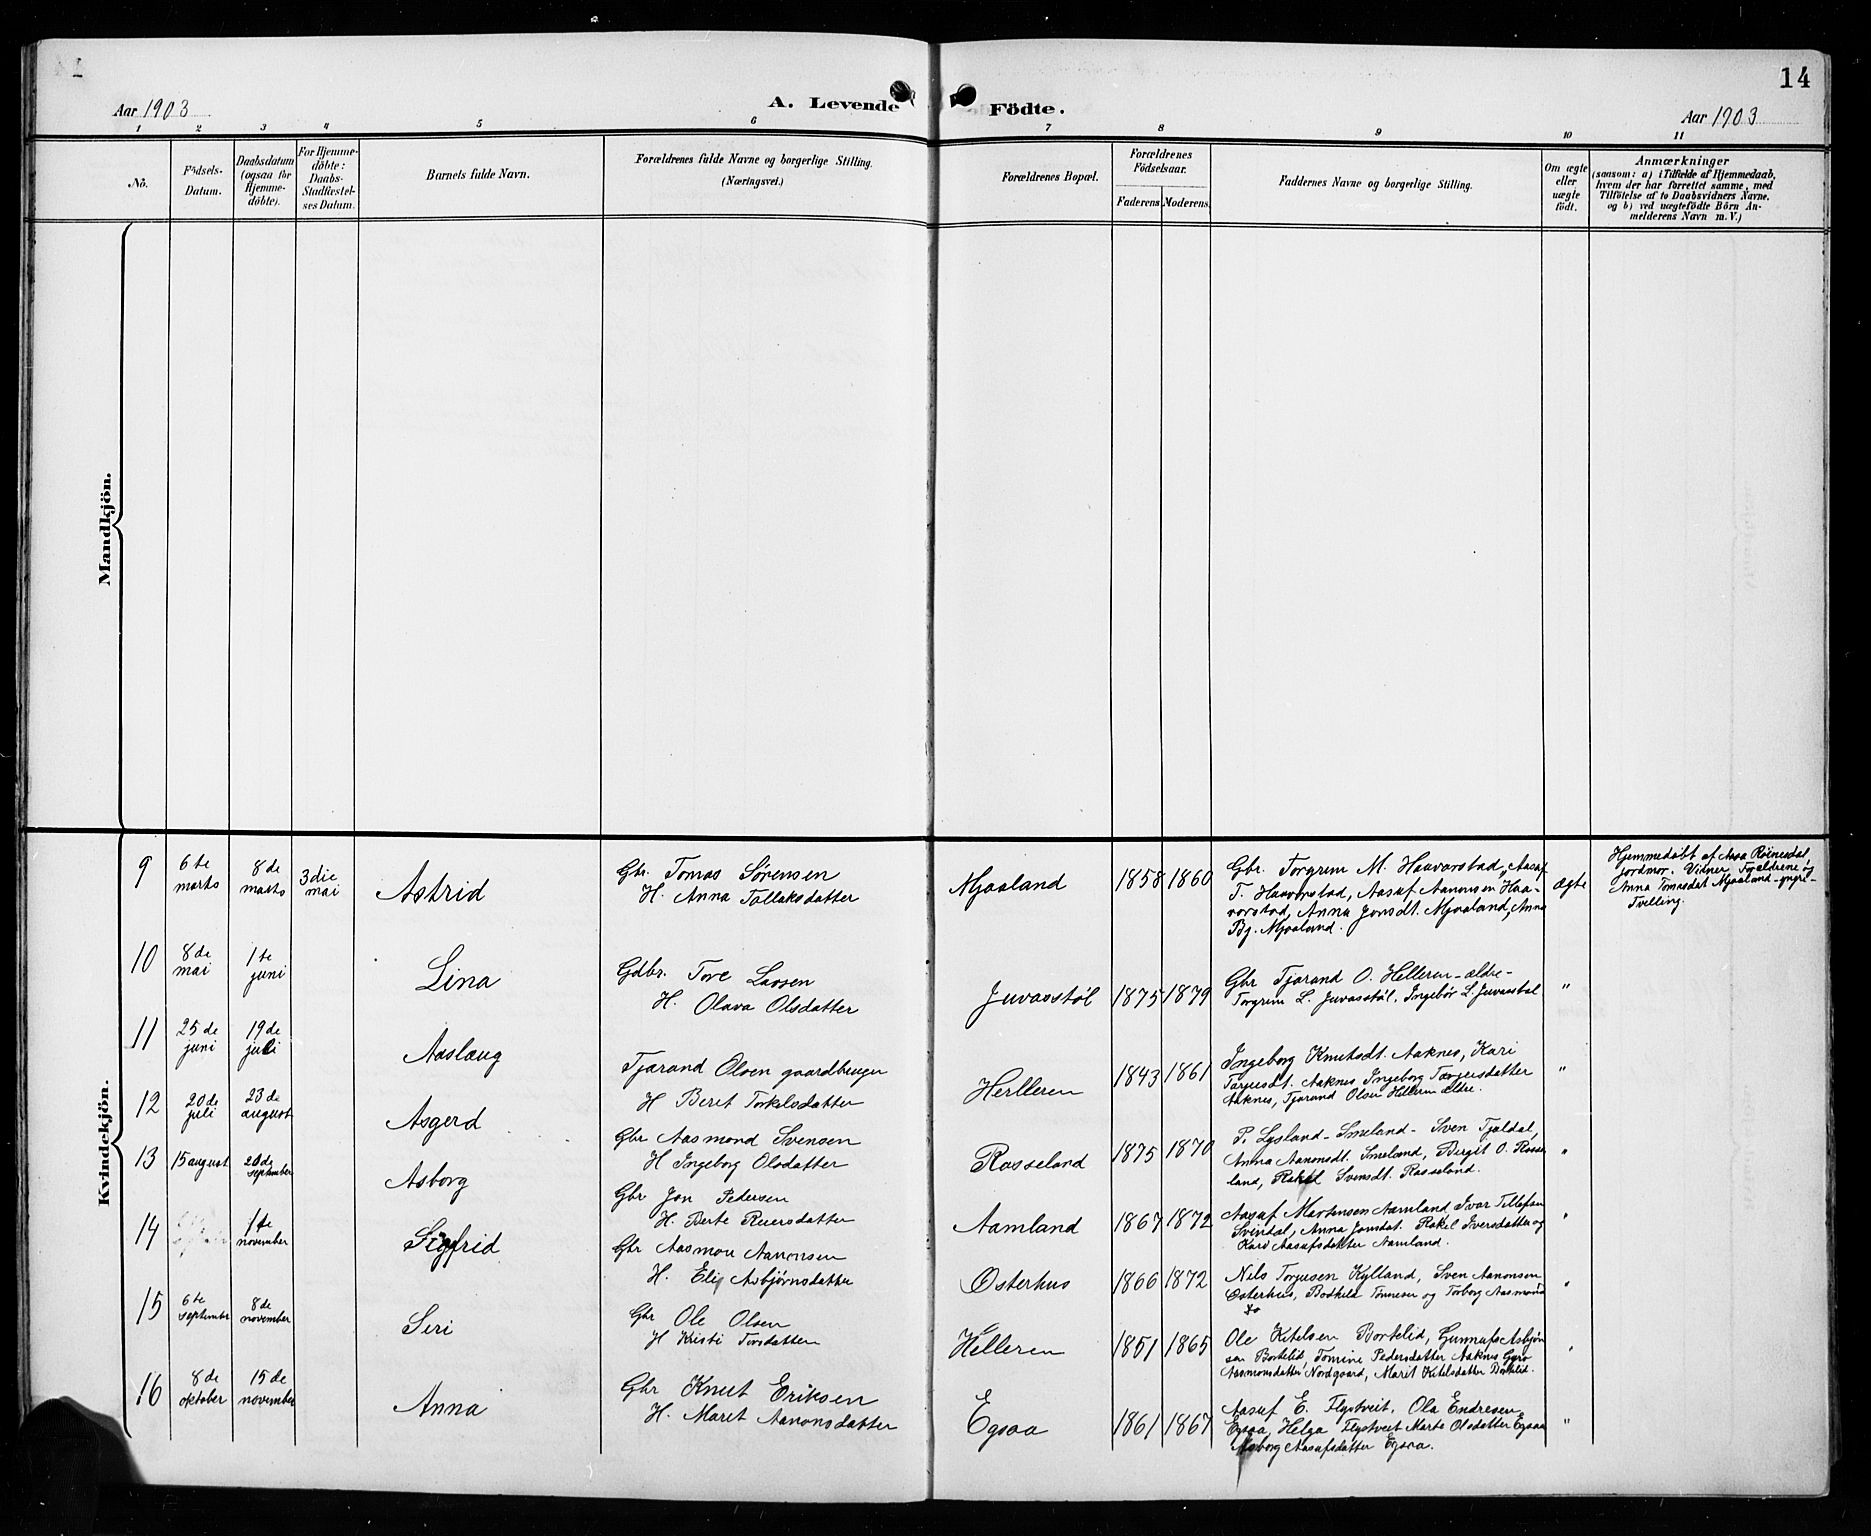 14
Aar 1903
A. Levende Födte.
Aar 1903
1 2 3 4 5 6 7 8 9 10 11
No.
Födsels-
Datum.
Daabsdatum
(ogsaa for
Hjemme-
döbte).
For Hjemme-
döbte:
Daabs-
Stadfæstel-
ses Datum.
Barnets fulde Navn.
Forældrenes fulde Navne og borgerlige Stilling.
(Næringsvei.)
Forældrenes Bopæl.
Forældrenes
Födselsaar.
Faderens Moderens.
Faddernes Navne og borgerlige Stilling.
Om ægte
eller
uægte
födt.
Anmærkninger
(saasom: a) i Tilfælde af Hjemmedaab,
hvem der har forrettet samme, med
Tilföielse af to Daabsvidners Navne,
og b) ved uægtefödte Börn An-
melderens Navn m. V.)
Mandkjön.
Kvindekjön.
9
6te
marts
8de
marts
3die
mai
Astrid
Gbr. Tomas Sørensen
H. Anna Tollaksdatter
Mjaaland
1858 1860
Gbr. Torgrim M. Haavorstad, Aasuf
T. Haavorstad, Aasuf Aanonsen Haa-
vorstad, Anna Jonsdt. Mjaaland, Anna
Bj. Mjaaland.
ægte
Hjemmedøbt af Aasa Røinesdal
jordmor. Vidner Forældrene og
Anna Tomasdat Mjaaland - yngre -
Tvelling.
10
8de
mai
1te
juni
Lina
Gdbr. Tore Lassen
H. Olava Olsdatter
Juvastøl
1875 1879
Gbr Tjorand O. Helleren - ældre -
Torgrim L. Juvasstøl, Ingebør L. Juvastøl
"
11
25de
juni
19de
juli
Aaslaug
Tjorand Olsen gaardbruger
H Beret Torkelsdatter
Herlleren
1843 1861
Ingeborg Knutsdt. Aaknes, Kari
Torjusdt. Aaknes Ingeborg Torjusdatter
Aaknes, Tjorand Olsen Helleren ældre.
"
12
20de
juli
23de
august
Asgerd
Gbr Aasmond Svensen
H Ingeborg Olsdatter
Rosseland
1875 1870
P. Lysland - Smeland - Sven Tjaldal,
Anna Aanonsdt. Smeland, Birgit O. Rosse
land, Rakel Svensdt. Rosseland.
"
13
15 august
20de
september
Asborg
Gbr Jon Pedersen
H. Berte Reiersdatter
Aamland
1867 1872
Aasuf Mortensen Aamland, Ivar Tellefsen
Svindal, Anna Jonsdat. Rakel Iversdatter og
Kari Aasufsdatter Aamland.
"
14
1te
november
Sigfrid
Gbr Aasmon Aanonsen
H. Eli Asbjørnsdatter
Østerhus
1866 1872
Nils Torjusen Kylland, Sven Aanonsen
Østerhus, Bodkild Tønnesen og Torborg Aasmond
"
15
6te
september
8de
november
Seri
Gbr Ole Olsen
H Kristi Torsdatter
Helleren
1851 1865
Ole Kitelsen Bortelid, Gunnuf Asbjøn
sen Bortelid, Tomine Pedersdatter Aaknes Gyro
Aasmonsdatter, Nordgaard, Marit Kitelsdatter Bortelid.
"
16
8de
oktober
15de
november
Anna
Gbr Knut Eriksen
H. Maret Aanonsdatter
Egsaa
1861 1867
Aasuf E. Flystveit. Ola Endresen
Egsaa, Helga Flystveit Marte Olsdatter Egsaa
Asborg Aasufsdatter Egsaa.
"